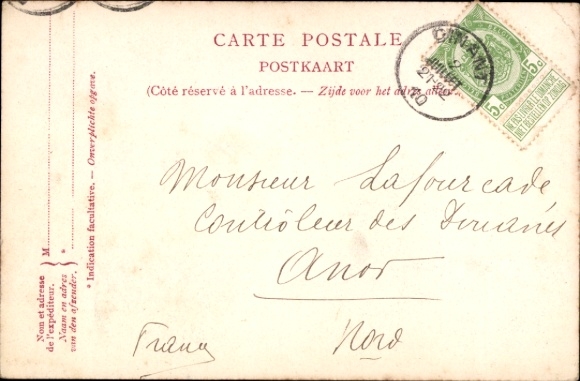 CARTE POSTALE
POSTKAART
(Côté réservé à l'adresse. — Zijde voor het adres
DINANT
21-22
10
5c
5c
NE PAS LIVRER LE DIMANCHE
NIET BESTELLEN OP ZONDAG
Monsieur Lafourcade
Contrôleur des Douanes
Anor
Nord
France
Nom et adresse
de l'expéditeur.
Naam en adres
van den afzender.
M
*
* Indication facultative. — Onverplichte opgave.